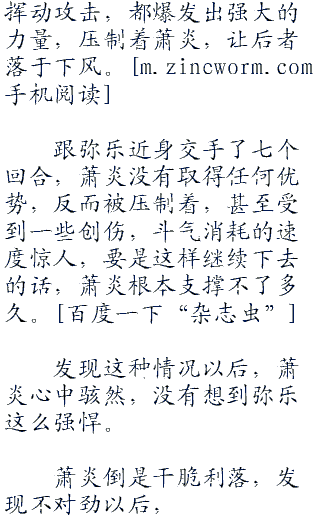 挥动攻击，都爆发出强大的
力量，压制着萧炎，让后者
落于下风。[m.zincworm.com
手机阅读]
跟弥乐近身交手了七个
回合，萧炎没有取得任何优
势，反而被压制着，甚至受
到一些创伤，斗气消耗的速
度惊人，要是这样继续下去
的话，萧炎根本支撑不了多
久。[百度一下“杂志虫”]
发现这种情况以后，萧
炎心中骇然，没有想到弥乐
这么强悍。
萧炎倒是干脆利落，发
现不对劲以后，